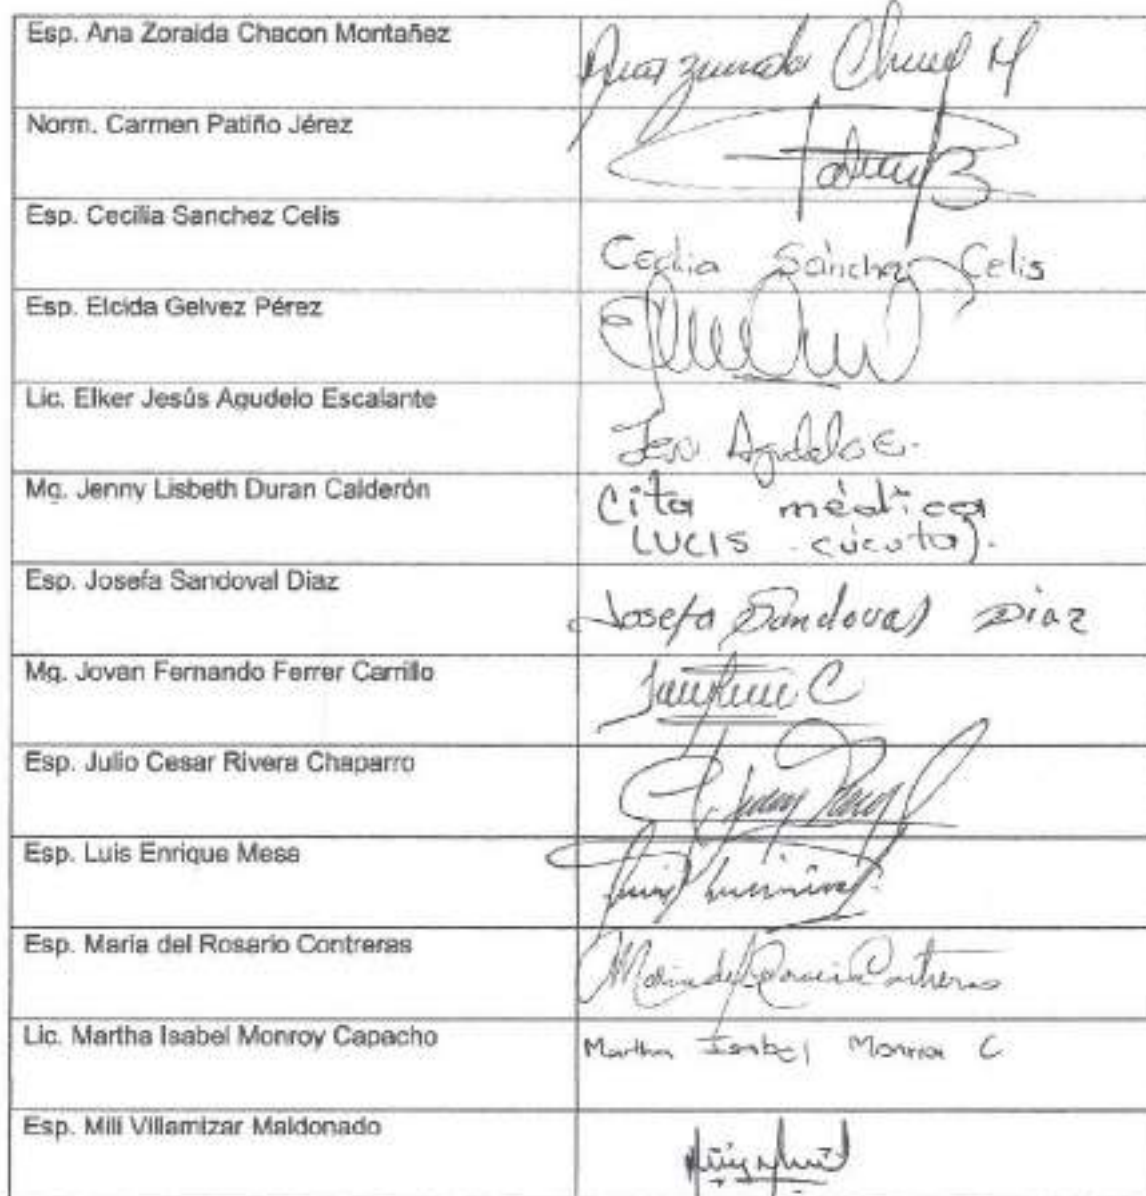 Esp. Ana Zoraida Chacon Montañez
Norm. Carmen Patiño Jérez
Esp. Cecilia Sanchez Celis
Cecilia Sánchez Celis
Esp. Elcida Gelvez Pérez
Lic. Elker Jesús Agudelo Escalante
Agudelo E.
Mg. Jenny Lisbeth Duran Calderón
Cita médica
LUCIS cúcuta).
Esp. Josefa Sandoval Diaz
Josefa Sandoval Diaz
Mg. Jovan Fernando Ferrer Carrillo
Esp. Julio Cesar Rivera Chaparro
Esp. Luis Enrique Mesa
Esp. Maria del Rosario Contreras
Maria del Rosario Contreras
Lic. Martha Isabel Monroy Capacho
Martha Isabel Monroy C
Esp. Mili Villamizar Maldonado